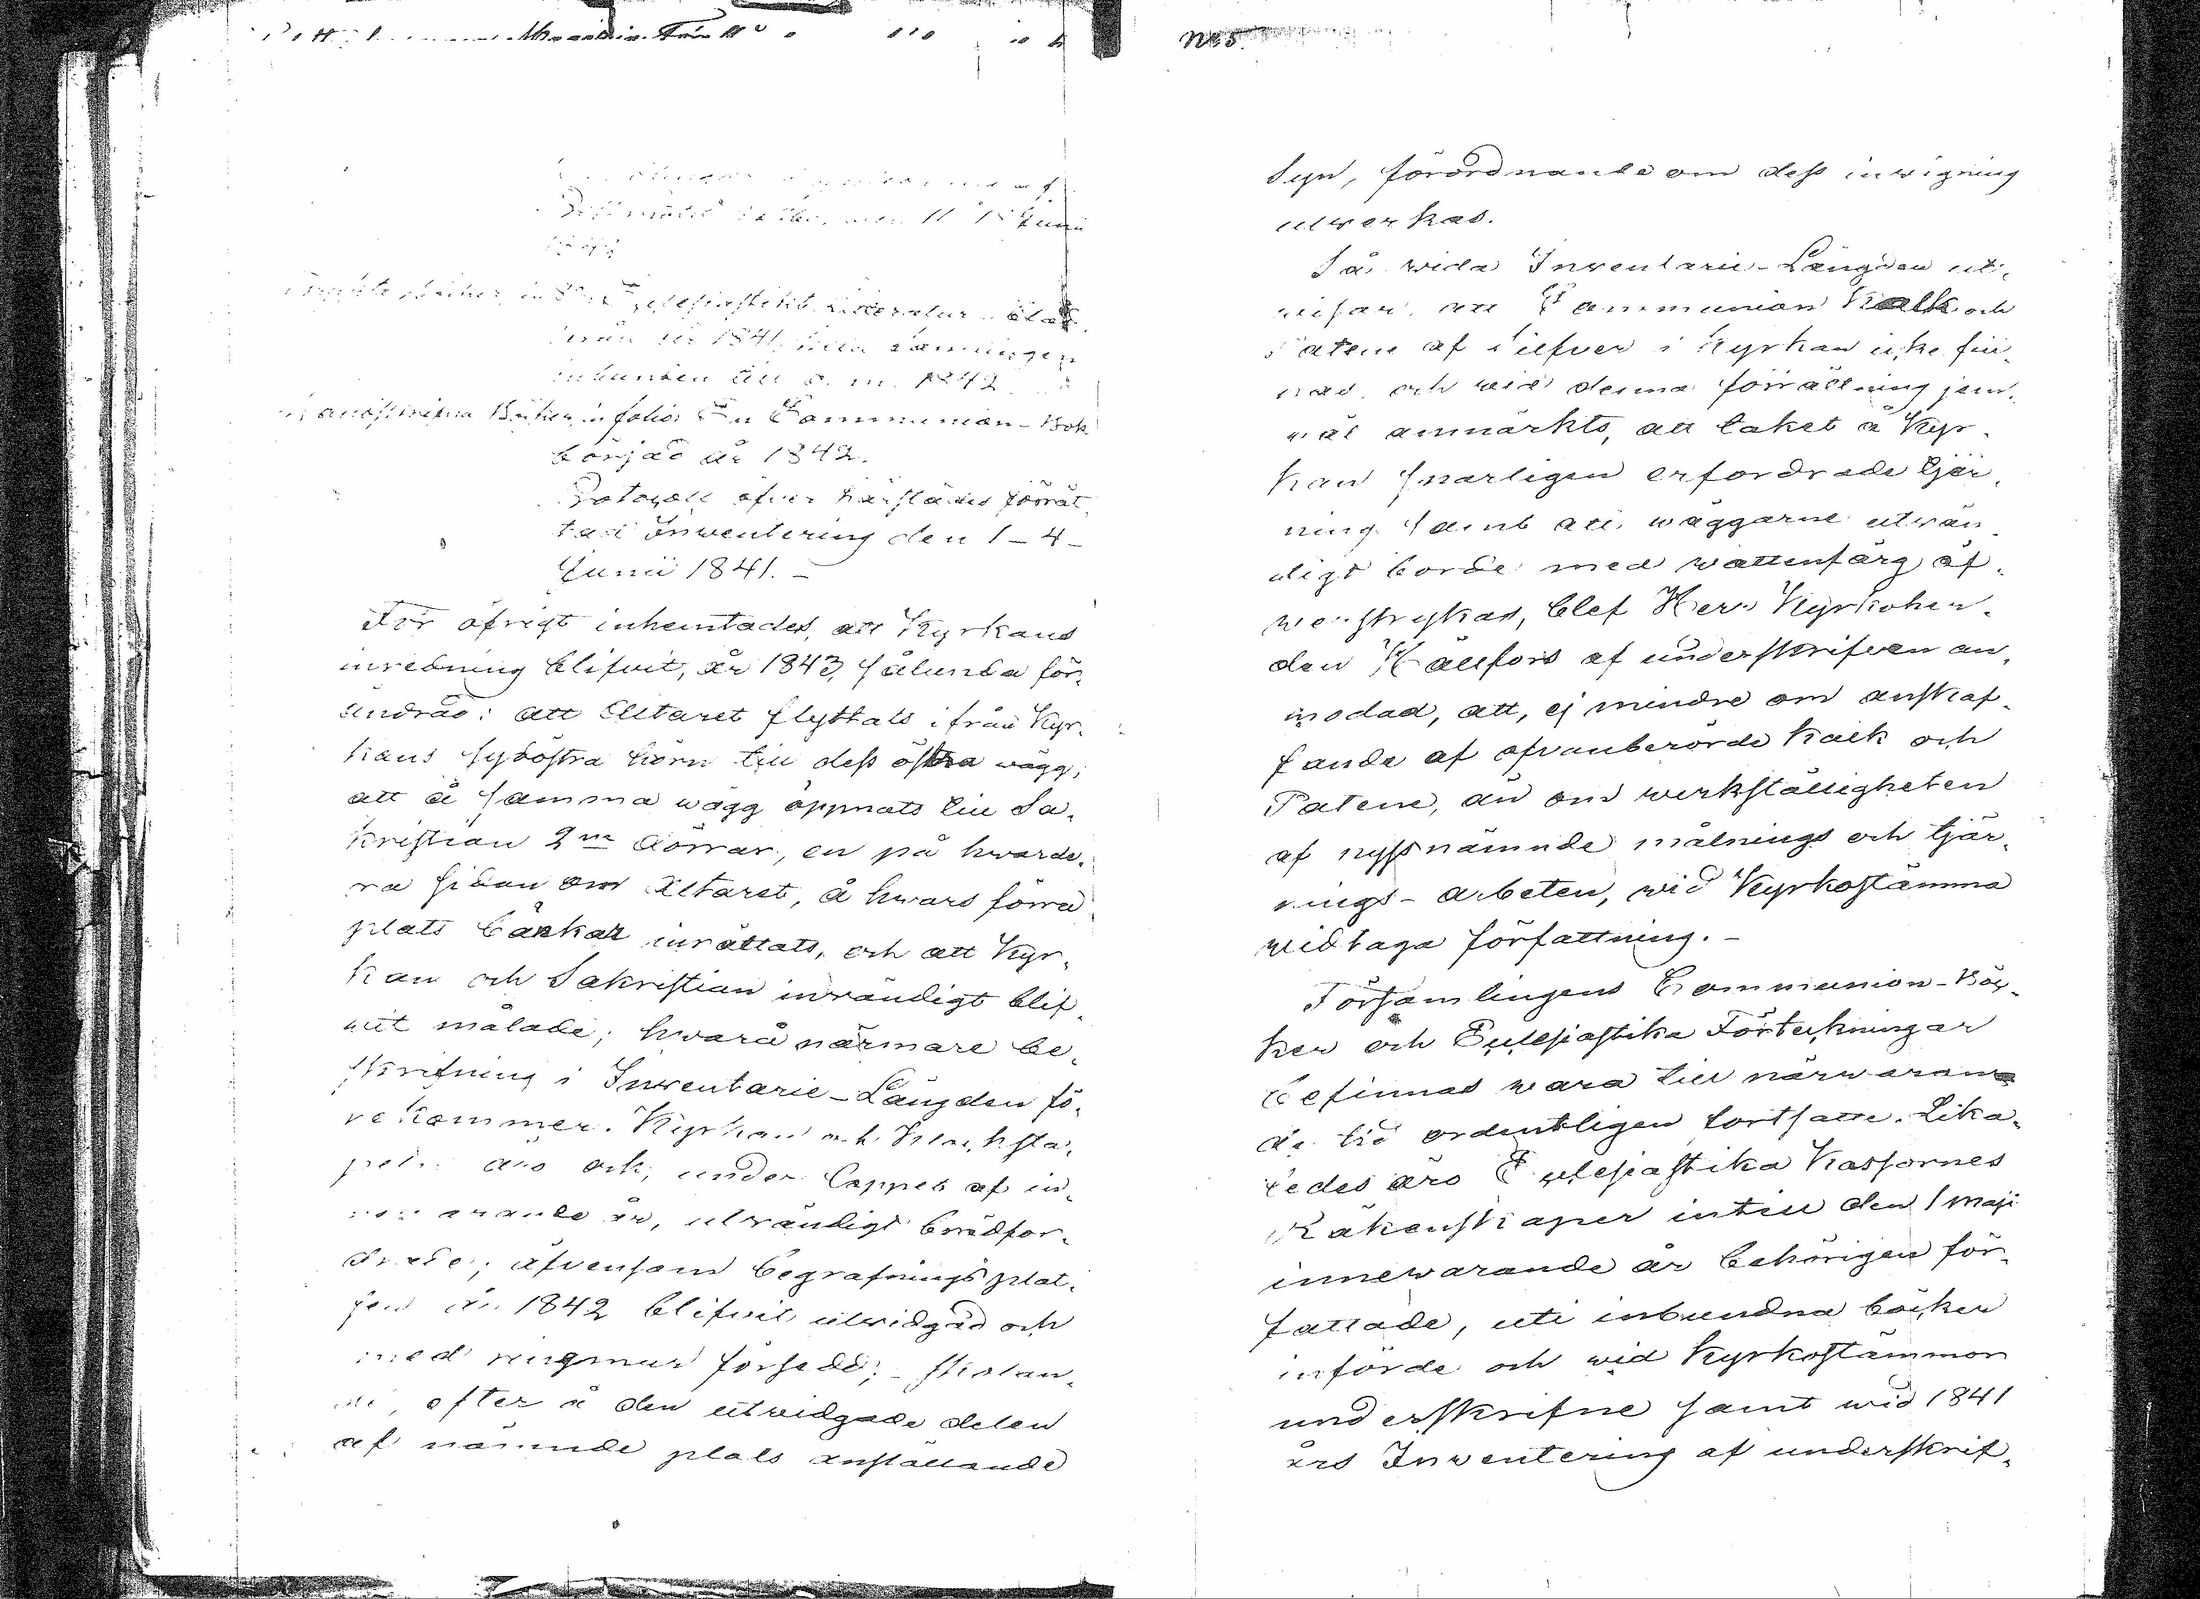 No 5.
Juni
Ecclesiastik Litteratur-Blad
från år 1841, hela samlingen
inbunden till o. m. 1842
Handskrifna Böcker in folio: En Communion-Bok
börjad år 1842.
Protocoll öfver härstädes förrät-
tad Inventering den 1-4-
Junii 1841. -
För öfrigt inhemtades, att Kyrkans
inredning blifvit, år 1843, sålunda för-
ändrad: att Altaret flyttats ifrån Kyr-
kans sydöstra hörn till dess östra wägg;
att å samma wägg öppnats till Sa-
kristian 2ne dörrar, en på hwarde-
ra sidan om Altaret, å hwars förra
plats bänkar inrättats, och att Kyr-
kan och Sakristian inwändigt blif-
vit målade; hvarå närmare be-
skrifning i Inventarie-Längden fö-
rekommer. Kyrkan och Klocksta-
peln äro ock, under loppet af in-
newarande år, utwändigt brädfor-
drade; äfvensom begrafningsplat-
sen år 1842 blifvit utvidgad och
med ringmur försedd; - skolan-
de, efter å den utvidgade delen
af nämnde plats anställande
Syn, förordnande om dess inwigning
utverkas.
Så wida Inventarie-Längden ut-
wisar, att Communion Kalk och
Patene af Silfver i Kyrkan icke fin-
nas, och wid denna förrättning jem-
wäl anmärkts, att taket å Kyr-
kan snarligen erfordrade tjär-
ning samt att wäggarne utwän-
digt borde med wattenfärg öf-
werstrykas, blef Herr Kyrkoher-
den Källfors af underskrifven an-
modad, att, ej mindre om anskaf-
fande af ofvanberörde Kalk och
Patene, än om werkställigheten
af nyssnämnde målnings och tjär-
nings-arbeten, wid Kyrkostämma
widtaga författning. -
Församlingens Communion-Böc-
ker och Ecclesiastika Förteckningar
befinnas wara till närwaran-
de tid ordentligen fortsatte. Lika-
ledes äro Ecclesiastika Kassornes
Räkenskaper intill den 1 Maji
innewarande år behörigen för-
fattade, uti inbundna böcker
införde och wid Kyrkostämmor
underskrifne samt wid 1841
års Inventering af underskrif-